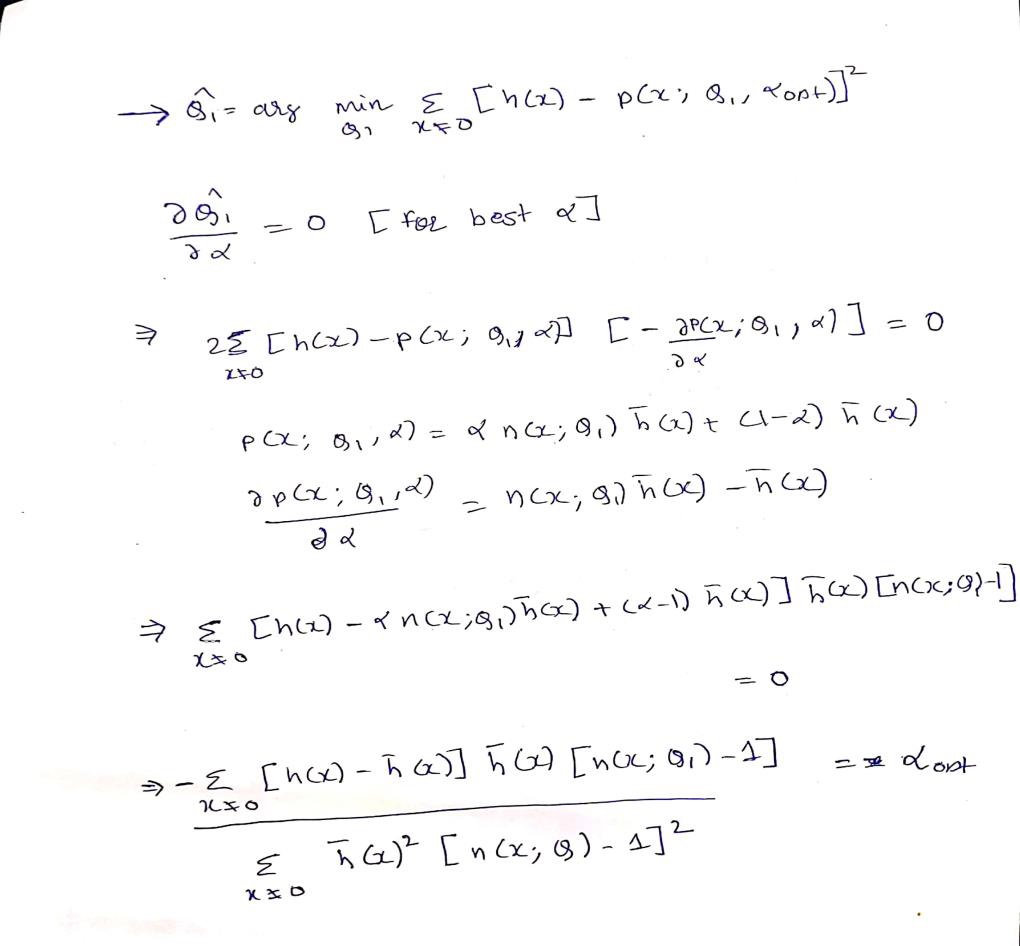 → θ̂₁ = arg min Σ [h(x) - p(x; θ₁, αopt)]²
θ₁ x≠0
∂θ̂₁/∂α = 0 [for best α]
⇒ 2Σ [h(x) - p(x; θ₁, α)] [- ∂p(x; θ₁, α)/∂α] = 0
x≠0
p(x; θ₁, α) = α n(x; θ₁) h̄(x) + (1-α) h̄(x)
∂p(x; θ₁, α)/∂α = n(x; θ₁) h̄(x) - h̄(x)
⇒ Σ [h(x) - α n(x; θ₁) h̄(x) + (α-1) h̄(x)] h̄(x) [n(x; θ)-1]
x≠0
= 0
⇒ - Σ [h(x) - h̄(x)] h̄(x) [n(x; θ₁) - 1] = αopt
x≠0
Σ h̄(x)² [n(x; θ) - 1]²
x≠0